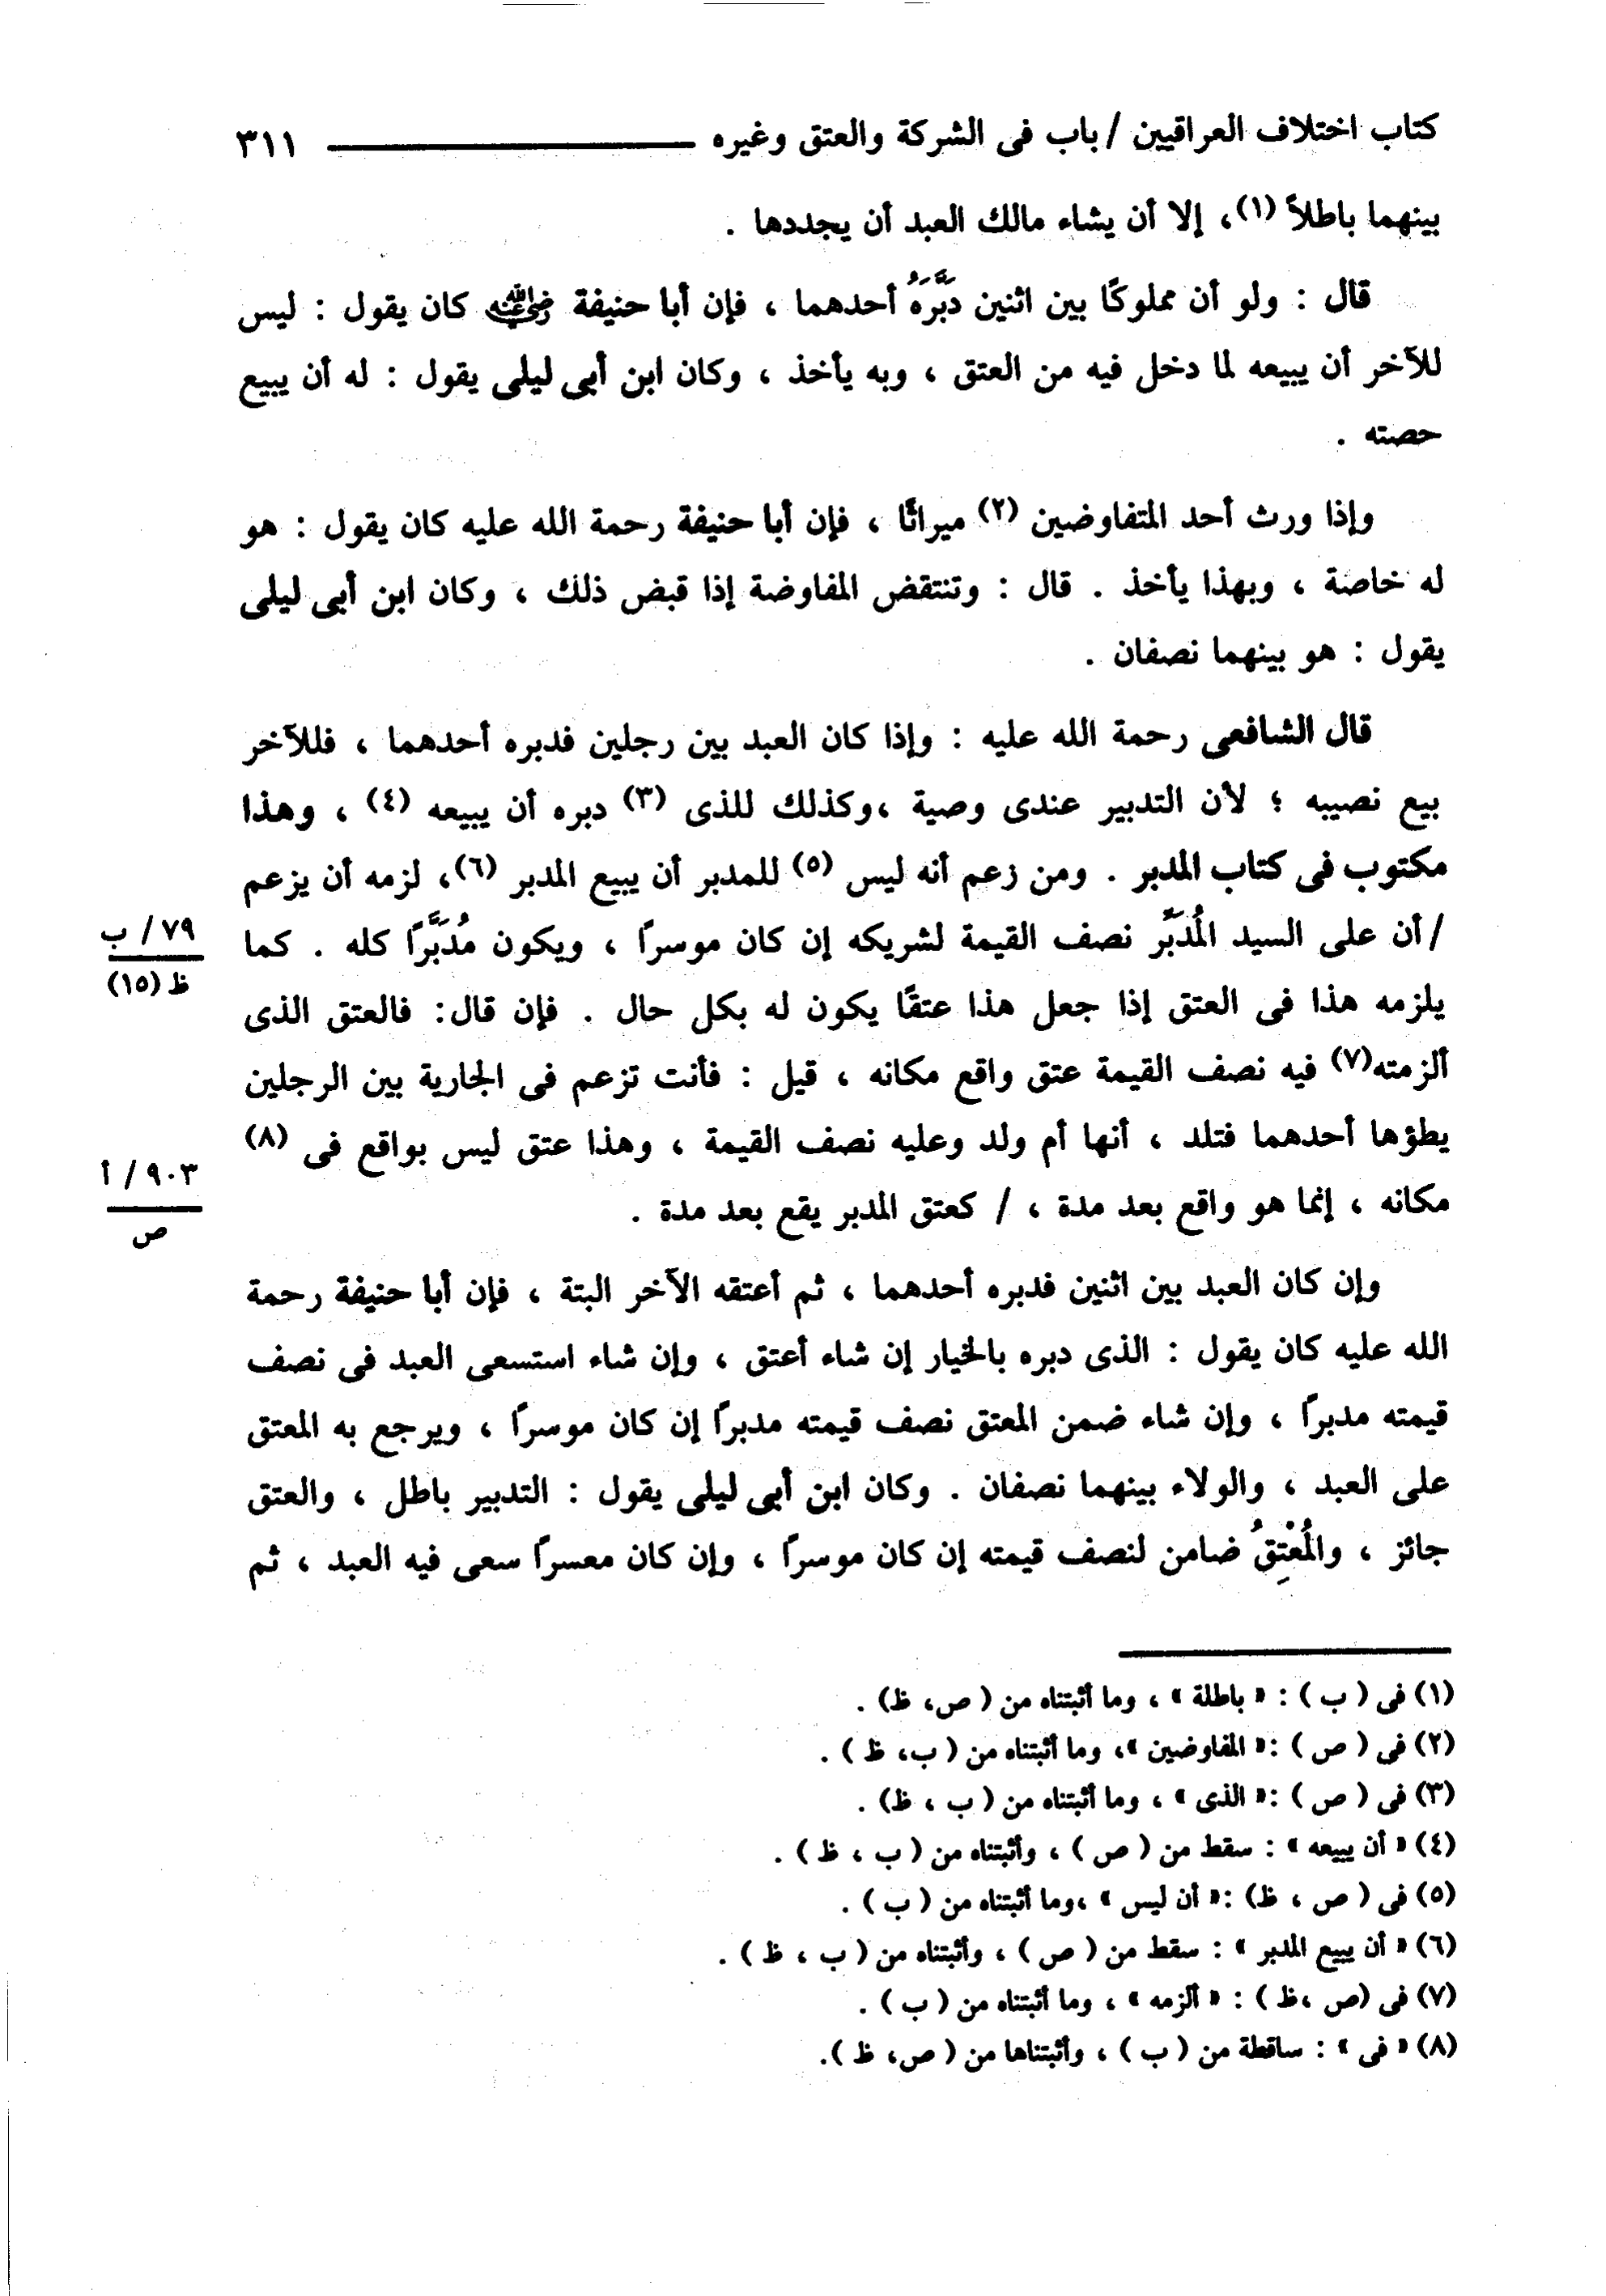 كتاب اختلاف العراقيين / باب فى الشركة والعتق وغيره ٣١١
بينهما باطلاً (١)، إلا أن يشاء مالك العبد أن يجددها .
قال : ولو أن مملوكًا بين اثنين دَبَّرَهُ أحدهما ، فإن أبا حنيفة رضي الله عنه كان يقول : ليس
للآخر أن يبيعه لما دخل فيه من العتق ، وبه يأخذ ، وكان ابن أبى ليلى يقول : له أن يبيع
حصته .
وإذا ورث أحد المتفاوضين (٢) ميراثًا ، فإن أبا حنيفة رحمة الله عليه كان يقول : هو
له خاصة ، وبهذا يأخذ . قال : وتنتقض المفاوضة إذا قبض ذلك ، وكان ابن أبى ليلى
يقول : هو بينهما نصفان .
قال الشافعى رحمة الله عليه : وإذا كان العبد بين رجلين فدبره أحدهما ، فللآخر
بيع نصيبه ؛ لأن التدبير عندى وصية ،وكذلك للذى (٣) دبره أن يبيعه (٤) ، وهذا
مكتوب فى كتاب المدبر . ومن زعم أنه ليس (٥) للمدبر أن يبيع المدبر (٦)، لزمه أن يزعم
/ أن على السيد المُدَبِّر نصف القيمة لشريكه إن كان موسرًا ، ويكون مُدَبَّرًا كله . كما
٧٩/ ب
ظ (١٥)
يلزمه هذا فى العتق إذا جعل هذا عتقًا يكون له بكل حال . فإن قال: فالعتق الذى
ألزمته(٧) فيه نصف القيمة عتق واقع مكانه ، قيل : فأنت تزعم فى الجارية بين الرجلين
يطؤها أحدهما فتلد ، أنها أم ولد وعليه نصف القيمة ، وهذا عتق ليس بواقع فى (٨)
مكانه ، إنما هو واقع بعد مدة ، / كعتق المدبر يقع بعد مدة .
٩٠٣/ أ
ص
وإن كان العبد بين اثنين فدبره أحدهما ، ثم أعتقه الآخر البتة ، فإن أبا حنيفة رحمة
الله عليه كان يقول : الذى دبره بالخيار إن شاء أعتق ، وإن شاء استسعى العبد فى نصف
قيمته مدبرًا ، وإن شاء ضمن المعتق نصف قيمته مدبرًا إن كان موسرًا ، ويرجع به المعتق
على العبد ، والولاء بينهما نصفان . وكان ابن أبى ليلى يقول : التدبير باطل ، والعتق
جائز ، والمُعْتِقُ ضامن لنصف قيمته إن كان موسرًا ، وإن كان معسرًا سعى فيه العبد ، ثم
(١) فى ( ب ) : « باطلة » ، وما أثبتناه من ( ص، ظ) .
(٢) فى ( ص ) :« المفاوضين »، وما أثبتناه من ( ب، ظ ) .
(٣) فى ( ص ) :« الذى » ، وما أثبتناه من ( ب ، ظ) .
(٤) « أن يبيعه » : سقط من ( ص ) ، وأثبتناه من ( ب ، ظ ) .
(٥) فى ( ص ، ظ) :« أن ليس » ،وما أثبتناه من ( ب ) .
(٦) « أن يبيع المدبر » : سقط من ( ص ) ، وأثبتناه من ( ب ، ظ ) .
(٧) فى (ص ،ظ ) : « ألزمه » ، وما أثبتناه من ( ب ) .
(٨) « فى » : ساقطة من ( ب ) ، وأثبتناها من ( ص، ظ ).